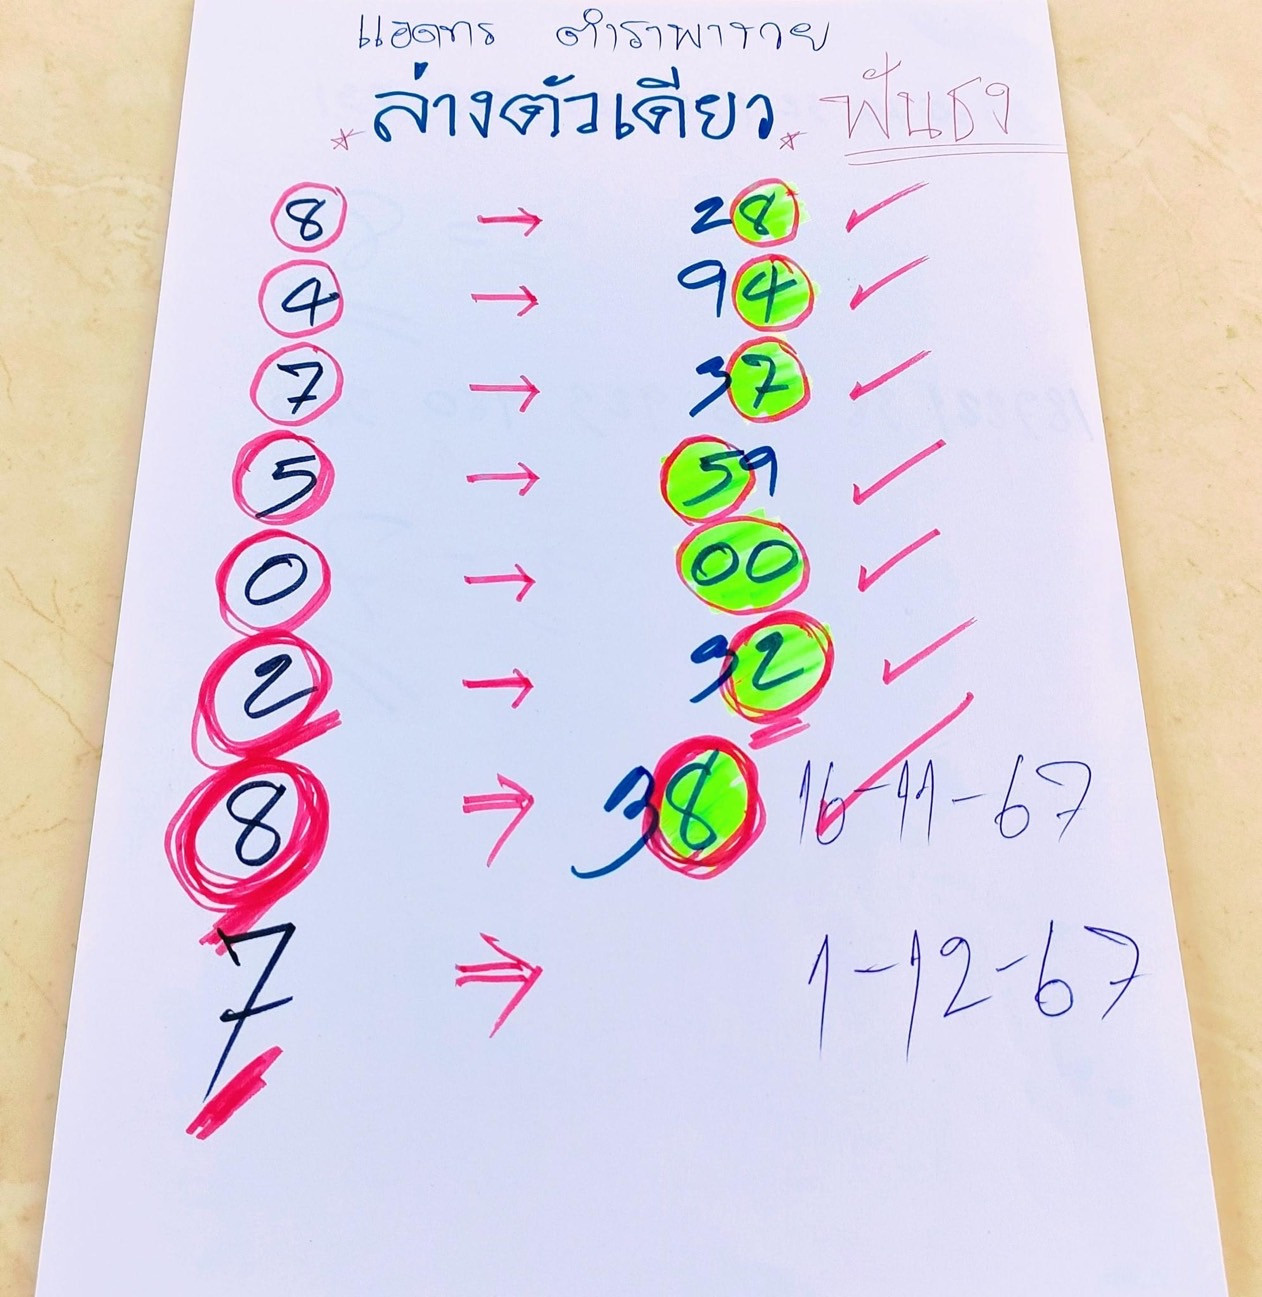 แอดทร ตำราพารวย
*ล่างตัวเดียว* ฟันธง
8 → 28 ✓
4 → 94 ✓
7 → 37 ✓
5 → 59 ✓
0 → 00 ✓
2 → 92 ✓
8 ⇒ 38 16-11-67 ✓
7 ⇒ 1-12-67